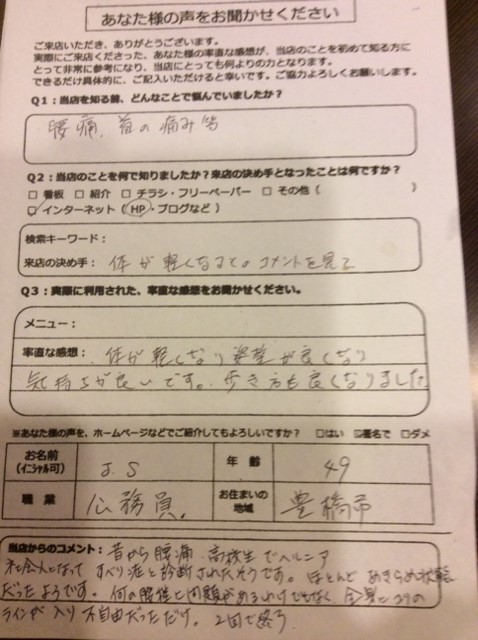 あなた様の声をお聞かせください
ご来店いただき、ありがとうございます。
実際にご来店くださった、あなた様の率直な感想が、当店のことを初めて知る方に
とって非常に参考になり、当店にとっても何よりの力となります。
できるだけ具体的に、ご記入いただけると幸いです。ご協力よろしくお願いします。
Q1:当店を知る前、どんなことで悩んでいましたか?
腰痛、首の痛み等
Q2:当店のことを何で知りましたか?来店の決め手となったことは何ですか?
□ 看板 □ 紹介 □ チラシ・フリーペーパー □ その他( )
☑ インターネット(HP・ブログなど)
検索キーワード:
来店の決め手: 体が軽くなるとのコメントを見て
Q3:実際に利用された、率直な感想をお聞かせください。
メニュー:
率直な感想: 体が軽くなり姿勢が良くなり
気持ちが良いです。歩き方も良くなりました
※あなた様の声を、ホームページなどでご紹介してもよろしいですか? □はい ☑匿名で □ダメ
お名前 (イニシャル可) J.S 年齢 49
職業 公務員. お住まいの地域 豊橋市
当店からのコメント: 昔から腰痛 高校生でヘルニア
社会人になって すべり症と診断されたそうです。ほとんど あきらめ状態
だったようです。何の腰痛と問題があるわけでもなく 全身にコリの
ラインが入り 不自由だっただけ。2回で終了